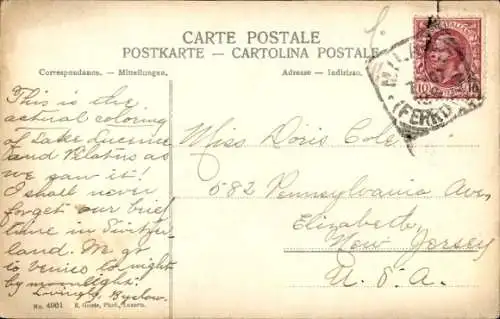 CARTE POSTALE
POSTKARTE - CARTOLINA POSTALE
Correspondance. - Mitteilungen.
Adresse - Indirizzo.
This is the
actual coloring
of Lake Lucerne
and Pilatus as
we saw it!
I shall never
forget our brief
time in Switzer-
land. We go
to Venice to-night
by moonlight.
Lovingly,
No. 4961 E. Goetz, Phot., Luzern.
Miss Doris Cole
582 Pennsylvania Ave,
Elizabeth,
New Jersey
U. S. A.
MILANO
(FERROV
10 10